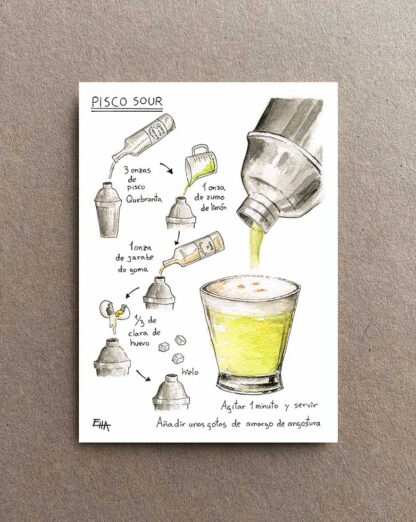 PISCO SOUR
3 onzas
de
pisco
Quebranta
1 onza
de zumo
de limón
1 onza
de jarabe
de goma
1/3 de
clara de
huevo
hielo
Agitar 1 minuto y servir
Añadir unas gotas de amargo de angostura
EHA